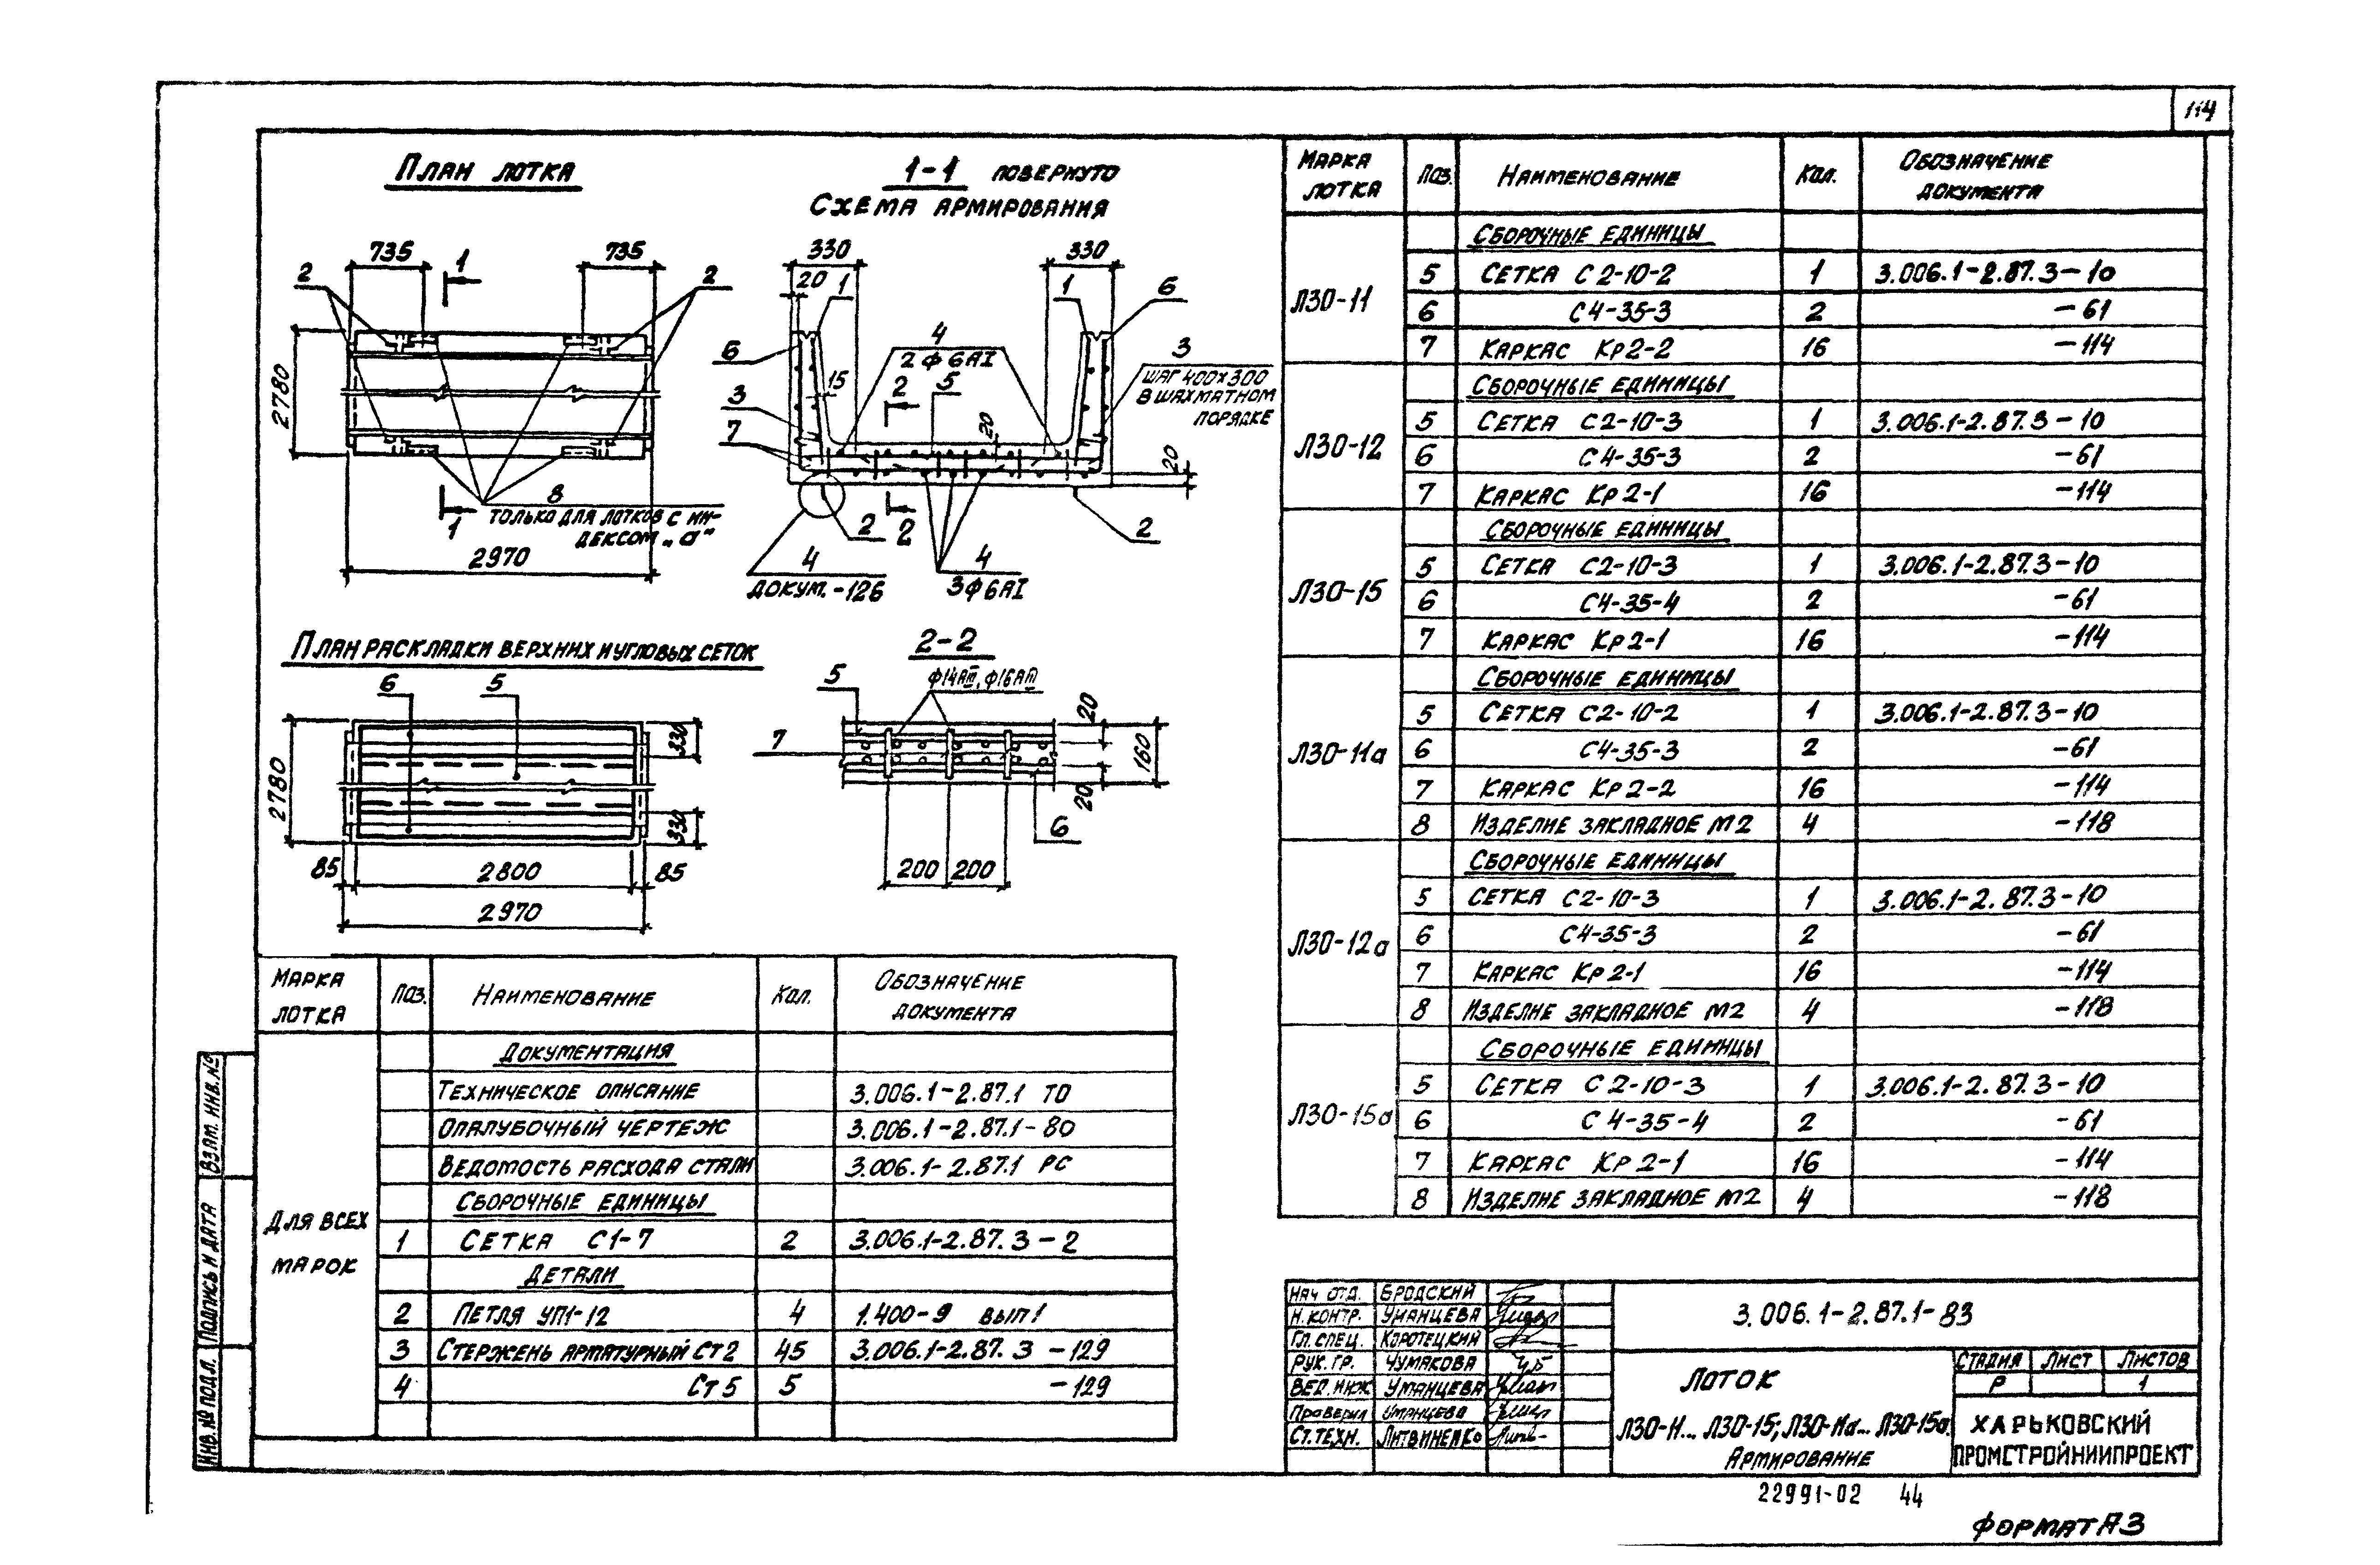 114
План лотка
735
735
1
2
2
2780
8
только для лотков с ин-
дексом „а"
1
2970
1-1 повернуто
Схема армирования
330
330
20
1
1
6
4
2ф6АI
6
3
шаг 400×300
в шахматном
порядке
15
2
5
3
7
20
20
2
2
2
4
докум.-126
4
3ф6АI
План раскладки верхних и угловых сеток
6
5
2780
330
330
85
2800
85
2970
2-2
5
ф14АIII, ф16АIII
7
20
160
20
6
200
200
Марка лотка
Поз.
Наименование
Кол.
Обозначение документа
Для всех марок
Документация
Техническое описание 3.006.1-2.87.1 ТО
Опалубочный чертеж 3.006.1-2.87.1-80
Ведомость расхода стали 3.006.1-2.87.1 РС
Сборочные единицы
1 Сетка С1-7 2 3.006.1-2.87.3-2
Детали
2 Петля УП1-12 4 1.400-9 вып1
3 Стержень арматурный Ст2 45 3.006.1-2.87.3-129
4 Ст5 5 -129
Марка лотка
Поз.
Наименование
Кол.
Обозначение документа
Л30-11
Сборочные единицы
5 Сетка С2-10-2 1 3.006.1-2.87.3-10
6 С4-35-3 2 -61
7 Каркас Кр2-2 16 -114
Л30-12
Сборочные единицы
5 Сетка С2-10-3 1 3.006.1-2.87.3-10
6 С4-35-3 2 -61
7 Каркас Кр2-1 16 -114
Л30-15
Сборочные единицы
5 Сетка С2-10-3 1 3.006.1-2.87.3-10
6 С4-35-4 2 -61
7 Каркас Кр2-1 16 -114
Л30-11а
Сборочные единицы
5 Сетка С2-10-2 1 3.006.1-2.87.3-10
6 С4-35-3 2 -61
7 Каркас Кр2-2 16 -114
8 Изделие закладное М2 4 -118
Л30-12а
Сборочные единицы
5 Сетка С2-10-3 1 3.006.1-2.87.3-10
6 С4-35-3 2 -61
7 Каркас Кр2-1 16 -114
8 Изделие закладное М2 4 -118
Л30-15а
Сборочные единицы
5 Сетка С2-10-3 1 3.006.1-2.87.3-10
6 С4-35-4 2 -61
7 Каркас Кр2-1 16 -114
8 Изделие закладное М2 4 -118
Инв.№ подл.
Подпись и дата
Взам. инв.№
Нач отд. Бродский
Н.контр. Уманцева
Гл.спец. Коротецкий
Рук.гр. Чумакова
Вед.инж Уманцева
Проверил Уманцева
Ст.техн. Литвиненко
3.006.1-2.87.1-83
Лоток
Л30-11... Л30-15; Л30-11а... Л30-15а.
Армирование
Стадия Лист Листов
Р 1
Харьковский
Промстройниипроект
22991-02 44
Формат А3